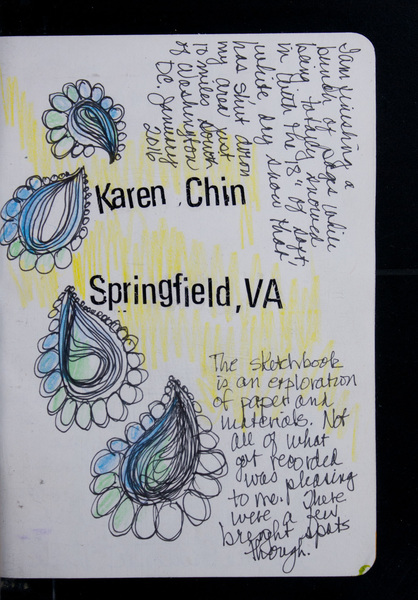 I am finishing a
bunch of page while
being totally snowed
in with the 18" of soft
white dry snow that
has shut down
my area just
10 miles south
of Washington
DC. January
2016
Karen Chin
Springfield, VA
The sketchbook
is an exploration
of paper and
materials. Not
all of what
got recorded
was pleasing
to me. There
were a few
breight spots
though.